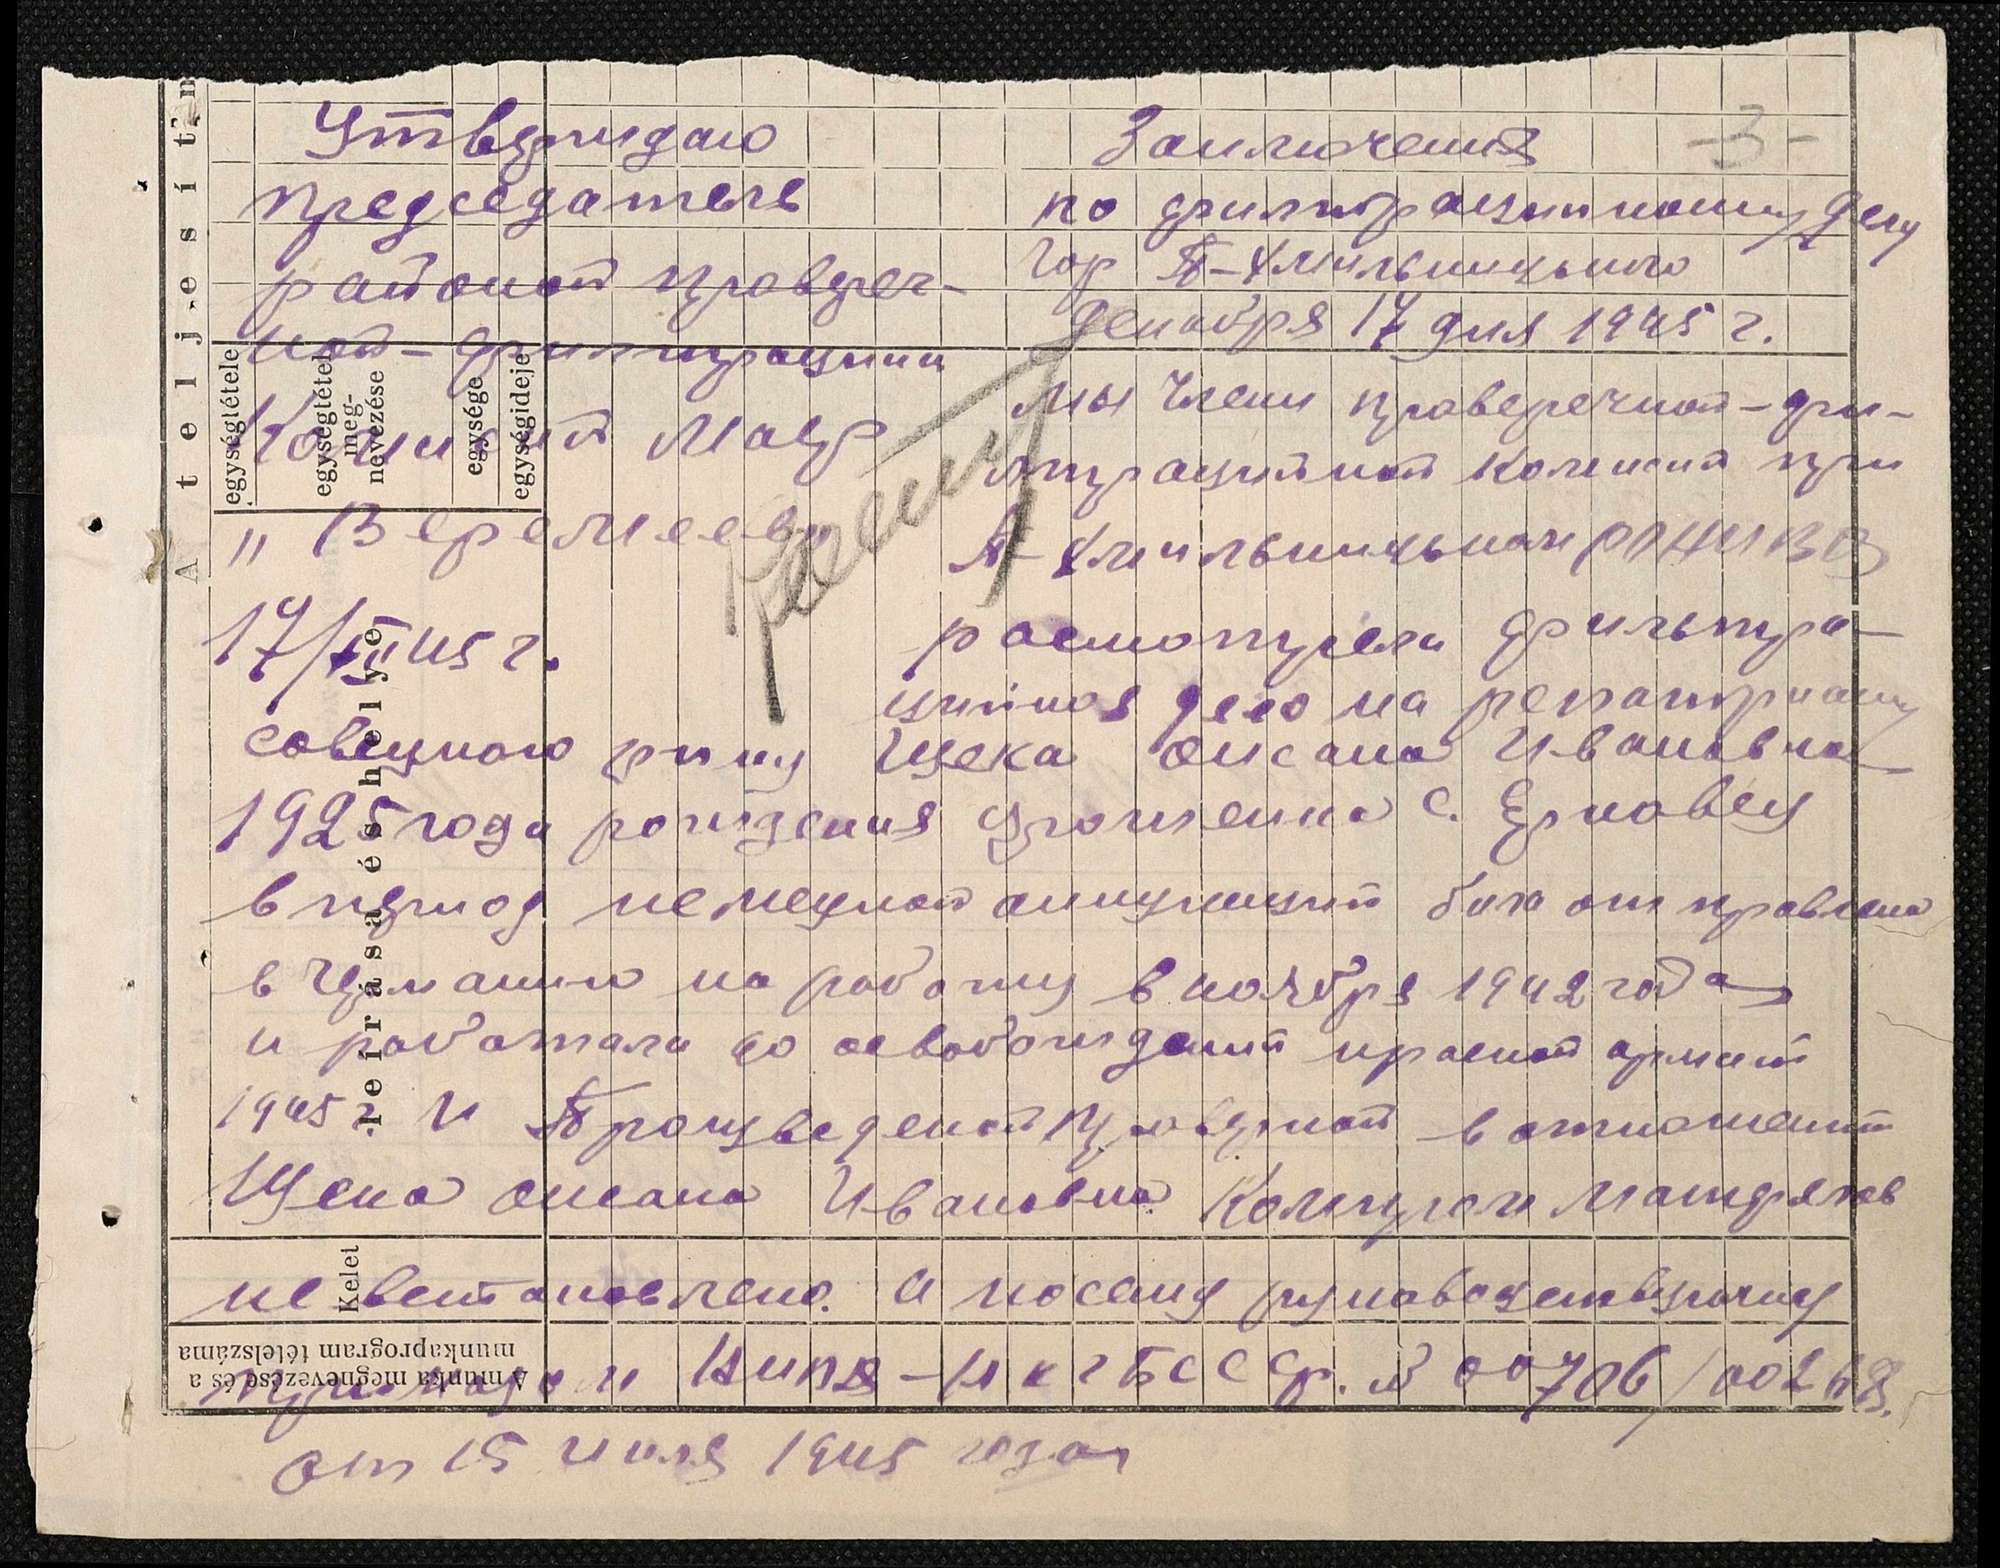 Утверждаю
Председатель
районой проверач-
ной - фильтрацыии
Комисий Маер
" Веремеев
17/XII 45 г.
Заключения
-3-
по фильтрацийному делу
Гор П-Хмильницького
Декабря 17 дня 1945 г.
мы Члены проверечной - фи-
лтрацийной Комисий при
П-Хмильницьком РОНКВД
расмотрели фильтра-
цийное дело на репатриану
совецкого Щека Оксана Ивановна
1925 года рождения Уроженка с. Ерковец
в период немецкой аккупацый была отправлена
в Германию на работу в ноября 1942 года
и работала до освобождений красной армий
1945 г. И Произведеной Проверкой в отношений
Щека Оксана Ивановна Компром Матерялов
не встановлено. и посему руководствуючись
приказом НКВД - НКГБ СССР. № 00706/00268.
от 15 июля 1945 года
Teljesítm
egységtétele
egységtétel meg-
nevezése
egysége
egységideje
A
leírása és helye
Kelet
A munka megnevezése és a
munkaprogram tételszáma